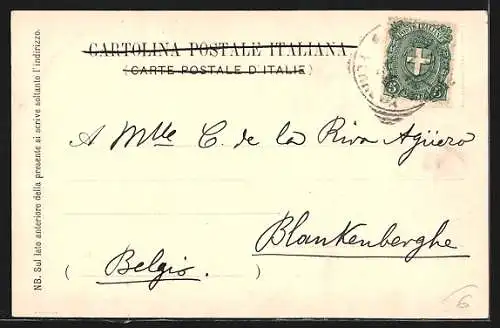 CARTOLINA POSTALE ITALIANA
(CARTE POSTALE D'ITALIE)
A Mlle C. de la Riva Agüero
Blankenberghe
(Belgio.)
NB. Sul lato anteriore della presente si scrive soltanto l'indirizzo.
5 5
6